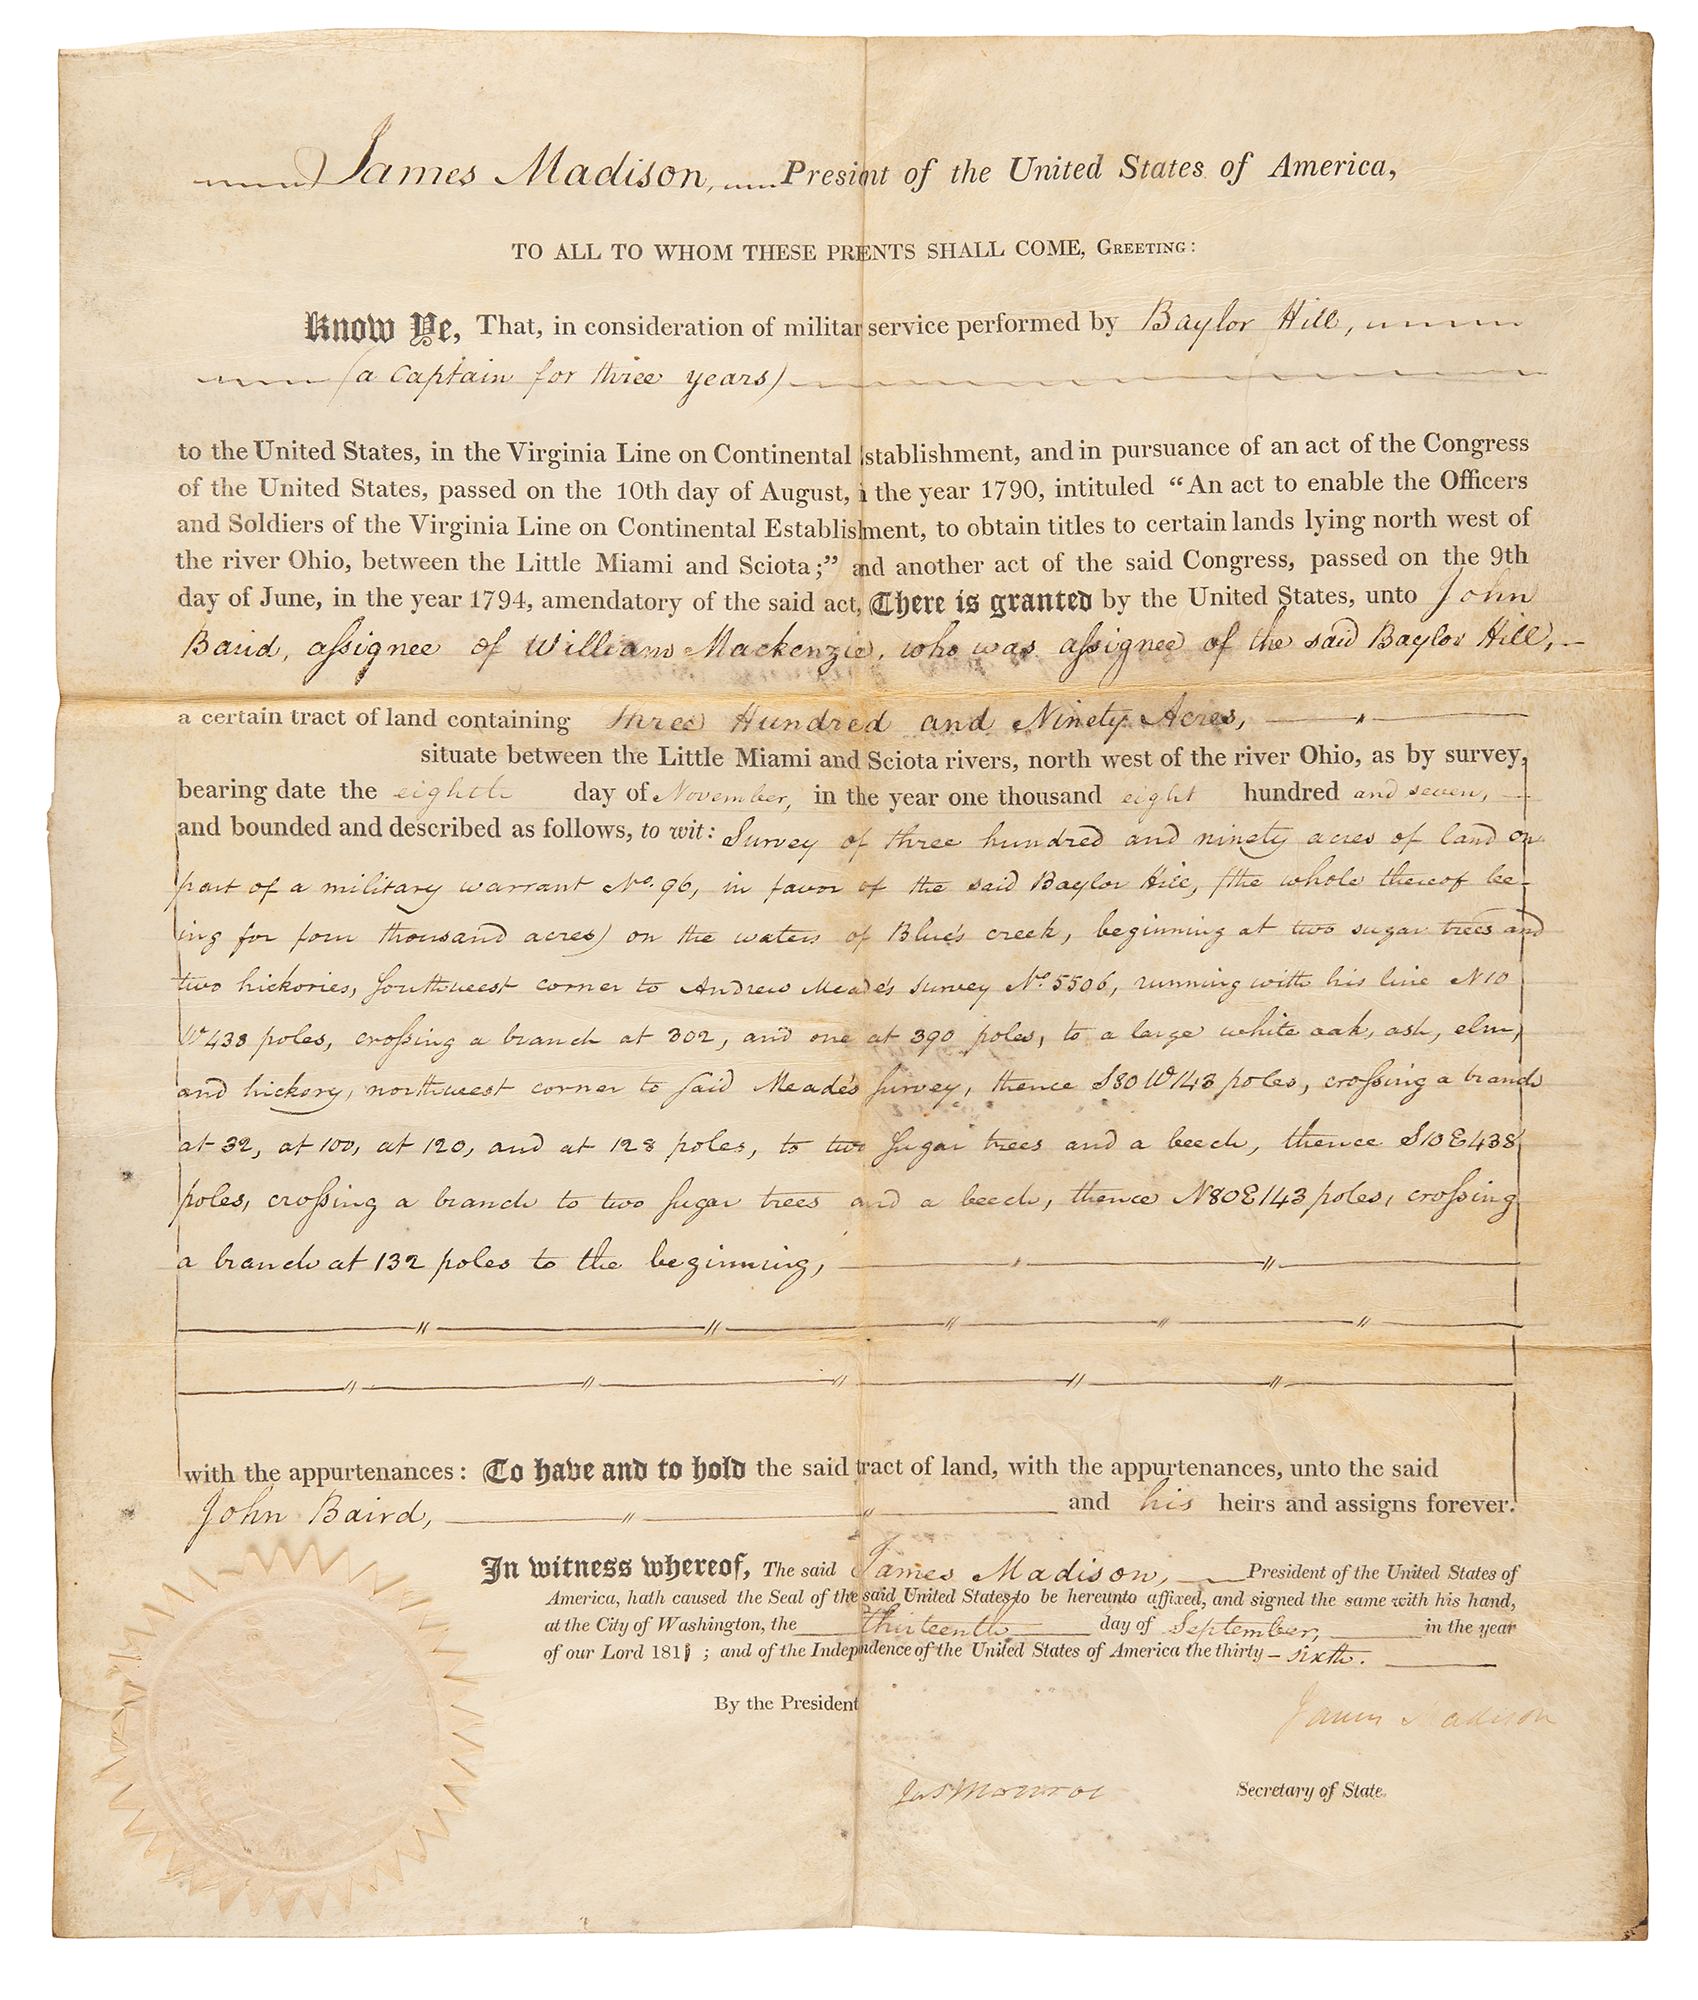 James Madison, Presient of the United States of America,
TO ALL TO WHOM THESE PRENTS SHALL COME, GREETING:
Know Ye, That, in consideration of militar service performed by Baylor Hill,
(a Captain for three years)
to the United States, in the Virginia Line on Continental Establishment, and in pursuance of an act of the Congress
of the United States, passed on the 10th day of August, i the year 1790, intituled "An act to enable the Officers
and Soldiers of the Virginia Line on Continental Establishment, to obtain titles to certain lands lying north west of
the river Ohio, between the Little Miami and Sciota;" and another act of the said Congress, passed on the 9th
day of June, in the year 1794, amendatory of the said act, There is granted by the United States, unto John
Baird, assignee of William Mackenzie, who was assignee of the said Baylor Hill,
a certain tract of land containing Three Hundred and Ninety Acres,
situate between the Little Miami and Sciota rivers, north west of the river Ohio, as by survey,
bearing date the eighth day of November, in the year one thousand eight hundred and seven,
and bounded and described as follows, to wit: Survey of three hundred and ninety acres of land on
part of a military warrant No. 96, in favor of the said Baylor Hill, (the whole thereof be-
ing for four thousand acres) on the waters of Blue's creek, beginning at two sugar trees and
two hickories, southwest corner to Andrew Meade's survey No. 5506, running with his line N10
W438 poles, crossing a branch at 302, and one at 390 poles, to a large white oak, ash, elm,
and hickory, northwest corner to said Meade's survey, thence S80W143 poles, crossing a branch
at 32, at 100, at 120, and at 128 poles, to two sugar trees and a beech, thence S10E438
poles, crossing a branch to two sugar trees and a beech, thence N80E143 poles, crossing
a branch at 132 poles to the beginning,
with the appurtenances: To have and to hold the said tract of land, with the appurtenances, unto the said
John Baird, and his heirs and assigns forever.
In witness whereof, The said James Madison, President of the United States of
America, hath caused the Seal of the said United States to be hereunto affixed, and signed the same with his hand,
at the City of Washington, the thirteenth day of September, in the year
of our Lord 1811; and of the Independence of the United States of America the thirty-sixth.
By the President
James Madison
Jas Monroe Secretary of State.